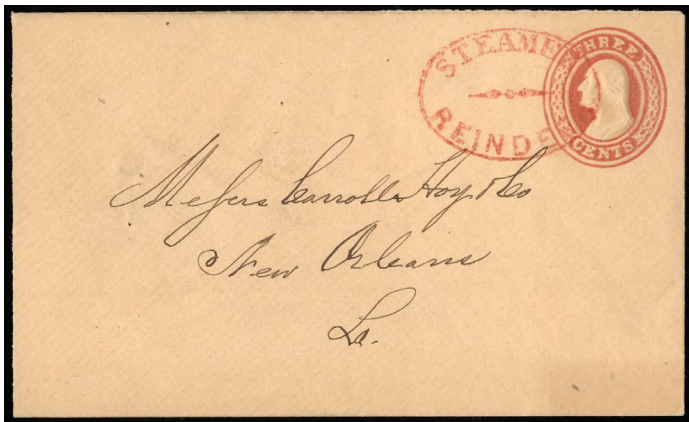 STEAME
REINDE
THREE
CENTS
Messrs Carroll Hoy & Co
New Orleans
La.